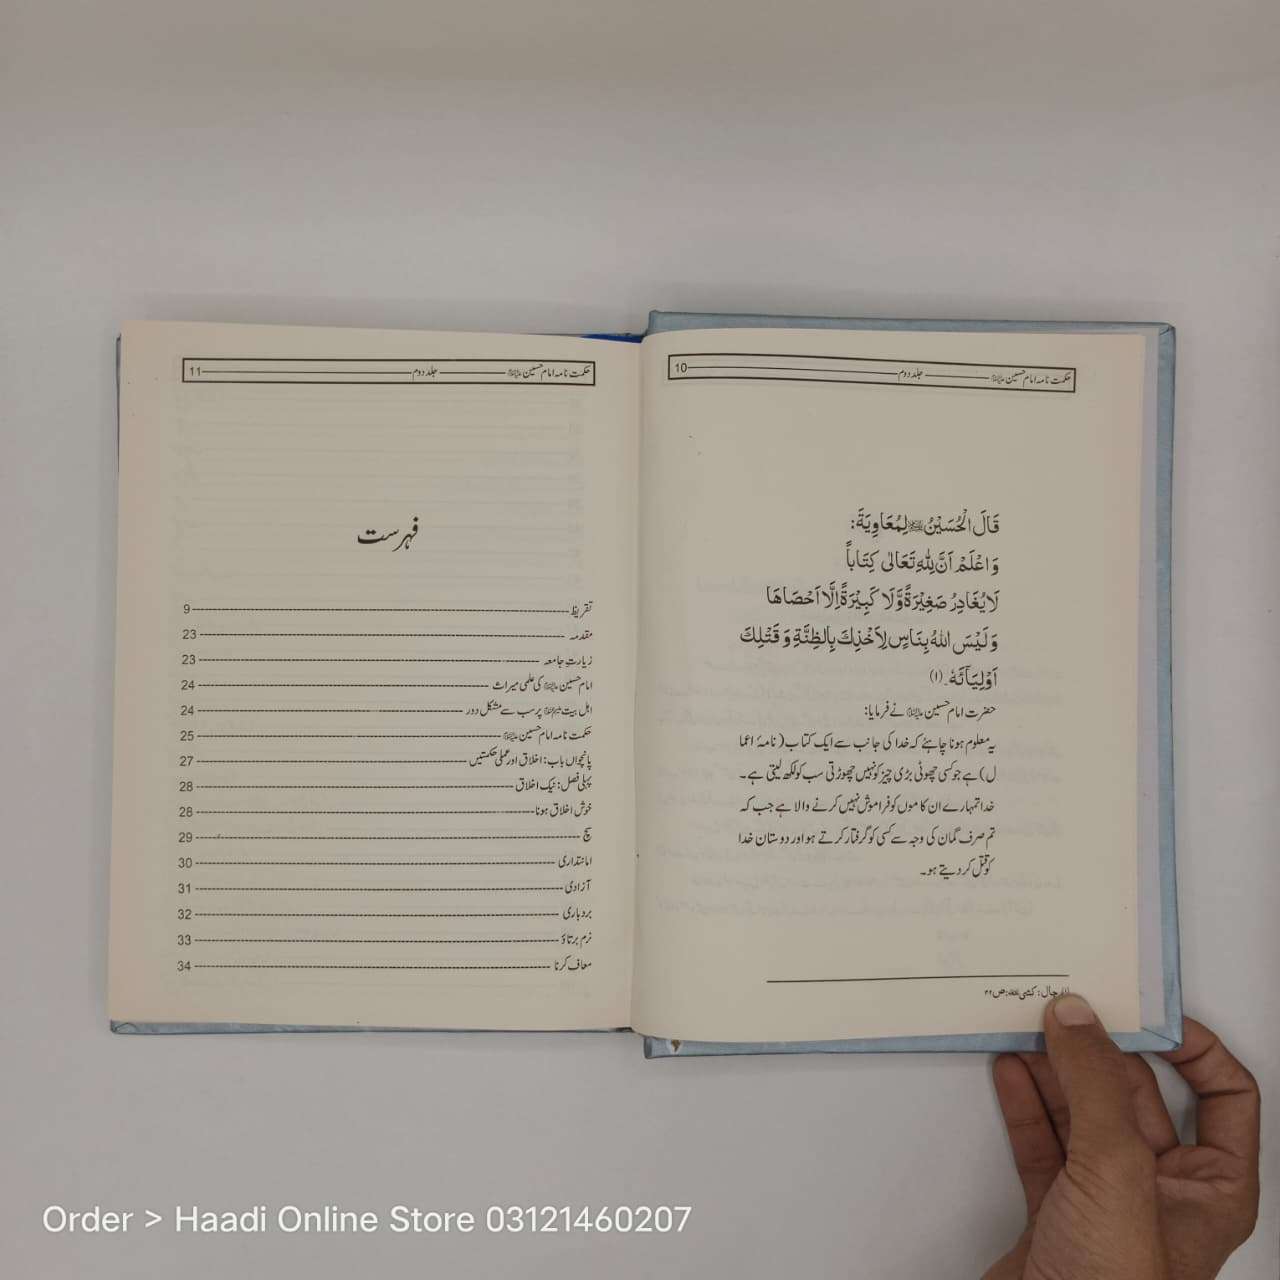 حکمت نامہ امام حسین علیہ السلام جلد دوم 10
قَالَ الْحُسَیْنُ لِمُعَاوِیَةَ:
وَاعْلَمْ اَنَّ لِلّٰهِ تَعَالٰی کِتَاباً
لَا یُغَادِرُ صَغِیْرَةً وَّلَا کَبِیْرَةً اِلَّا اَحْصَاهَا
وَلَیْسَ اللهُ بِنَاسٍ لِاَخْذِكَ بِالظِّنَّةِ وَ قَتْلِكَ
اَوْلِیَآئَهٗ۔(۱)
حضرت امام حسین علیہ السلام نے فرمایا:
یہ معلوم ہونا چاہئے کہ خدا کی جانب سے ایک کتاب (نامۂ اعما
ل) ہے جو کسی چھوٹی بڑی چیز کو نہیں چھوڑتی سب کو لکھ لیتی ہے۔
خدا تمہارے ان کاموں کو فراموش نہیں کرنے والا ہے جب کہ
تم صرف گمان کی وجہ سے کسی کو گرفتار کرتے ہو اور دوستان خدا
کو قتل کر دیتے ہو۔
رجال: کشی: ص
حکمت نامہ امام حسین علیہ السلام جلد دوم 11
فہرست
تقریظ 9
مقدمہ 23
زیارت جامعہ 23
امام حسین علیہ السلام کی علمی میراث 24
اہل بیت پر سب سے مشکل دور 24
حکمت نامہ امام حسین علیہ السلام 25
پانچواں باب: اخلاقی اور عملی حکمتیں 27
پہلی فصل: نیک اخلاق 28
خوش اخلاق ہونا 28
سچ 29
امانتداری 30
آزادی 31
بردباری 32
نرم برتاؤ 33
معاف کرنا 34
Order > Haadi Online Store 03121460207